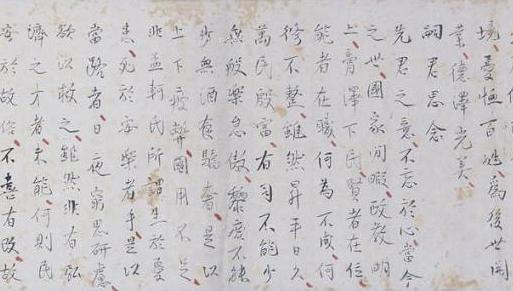 境、憂恤百姓、為後世開
業、德澤光美、
嗣君思念
先君之意不忘於心、當今
之世、國家間暇政教明
上、膏澤下民、賢者在位
能者在職、何為不成、何
修不整、雖然昇平日久
萬民殷富、有司不能少
無般樂怠傲、黎庶不能
少無酒食驕奢、是以
上下疲弊、國用不足
非孟軻氏所謂生於憂
患、死於安樂者乎、是以
當路者日夜窮思研慮、
欲以救之、雖然非有弘
濟之才者、未能、何則民
安於故俗、不喜有改故